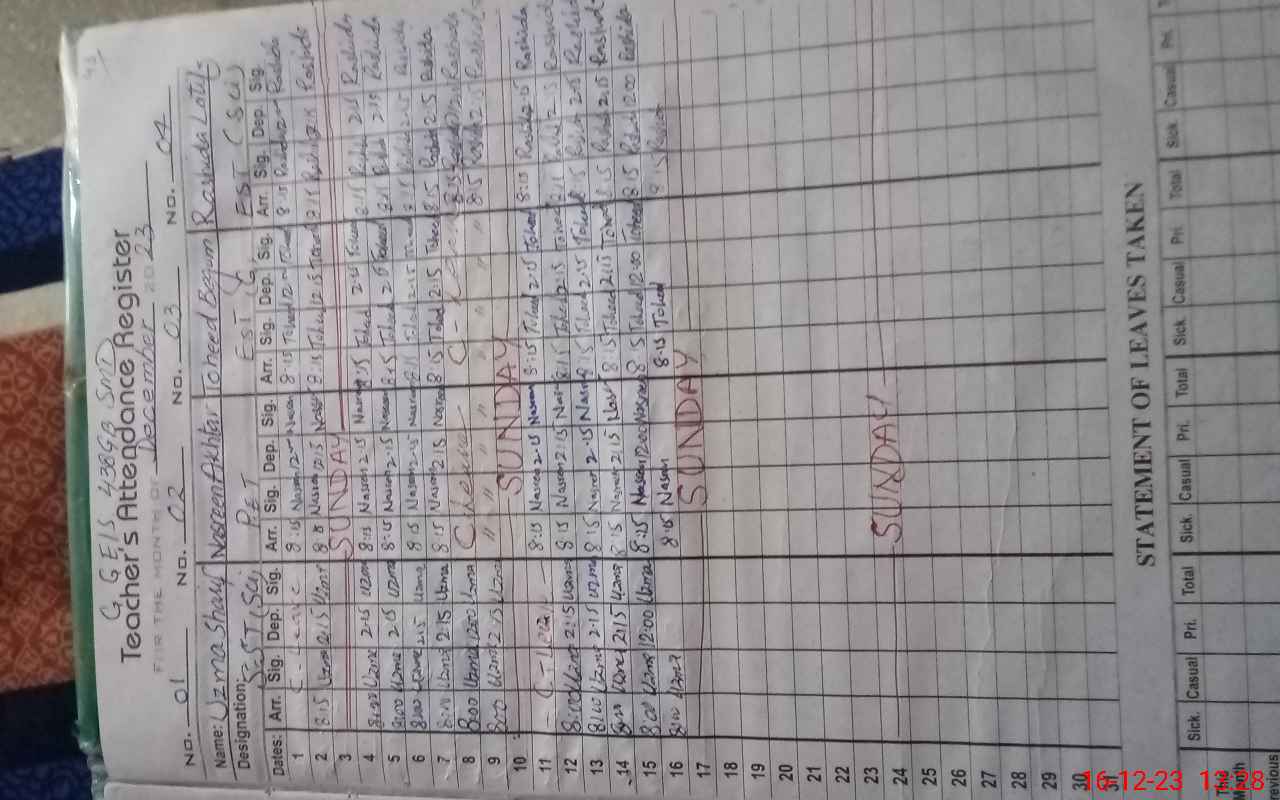 G GEIS 438GB SMD
Teacher's Attendance Register
FOR THE MONTH OF December 2023
No. 01 No. 02 No. 03 No. 04
Name: Uzma Shafiq Nasreen Akhtar Toheed Begum Rashida Latif
Designation: SEST (Sci) PET EST EST (Sci)
Dates: Arr. Sig. Dep. Sig. Arr. Sig. Dep. Sig. Arr. Sig. Dep. Sig. Arr. Sig. Dep. Sig.
1 C-Leave 8:15 8:15 Toheed 8:15 Rashida
2 8:15 Uzma 12:15 Uzma Nasreen 12:15 8:15 Toheed 12:15 Toheed 8:15 Rashida
3 SUNDAY
4 8:00 Uzma 2:15 Uzma 8:15 Nasreen 2:15 Nasreen 8:15 Toheed 2:15 Toheed 8:15 Rashida 2:15 Rashida
5 8:00 Uzma 2:15 Uzma 8:15 Nasreen 2:15 Nasreen 8:15 Toheed 2:15 Toheed 8:15 Rashida 2:15 Rashida
6 8:00 Uzma 2:15 Uzma 8:15 Nasreen 2:15 Nasreen 8:15 Toheed 2:15 Toheed 8:15 Rashida 2:15 Rashida
7 8:00 Uzma 2:15 Uzma 8:15 Nasreen 2:15 Nasreen 8:15 Toheed 2:15 Toheed 8:15 Rashida 2:15 Rashida
8 8:00 Uzma 12:00 Uzma C-leave C-Leave 8:15 Rashida Rashida
9 8:00 Uzma 2:15 Uzma " " " " " " 8:15 Rashida 2:15 Rashida
10 SUNDAY
11 C-Leave 8:15 Nasreen 2:15 Nasreen 8:15 Toheed 2:15 Toheed 8:15 Rashida 2:15 Rashida
12 8:00 Uzma 2:15 Uzma 8:15 Nasreen 2:15 Nasreen 8:15 Toheed 2:15 Toheed 8:15 Rashida 2:15 Rashida
13 8:00 Uzma 2:15 Uzma 8:15 Nasreen 2:15 Nasreen 8:15 Toheed 2:15 Toheed 8:15 Rashida 2:15 Rashida
14 8:00 Uzma 2:15 Uzma 8:15 Nasreen 2:15 Nasreen 8:15 Toheed 2:15 Toheed 8:15 Rashida 2:15 Rashida
15 8:00 Uzma 12:00 Uzma 8:15 Nasreen 12:00 Nasreen 8:15 Toheed 12:00 Toheed 8:15 Rashida 12:00 Rashida
16 8:00 Uzma 8:15 Nasreen 8:15 Toheed 8:15 Rashida
17 SUNDAY
18
19
20
21
22
23
24 SUNDAY
25
26
27
28
29
30
31
STATEMENT OF LEAVES TAKEN
Sick. Casual Pri. Total Sick. Casual Pri. Total Sick Casual Pri. Total Sick Casual Pri.
This Month
16-12-23 13:28